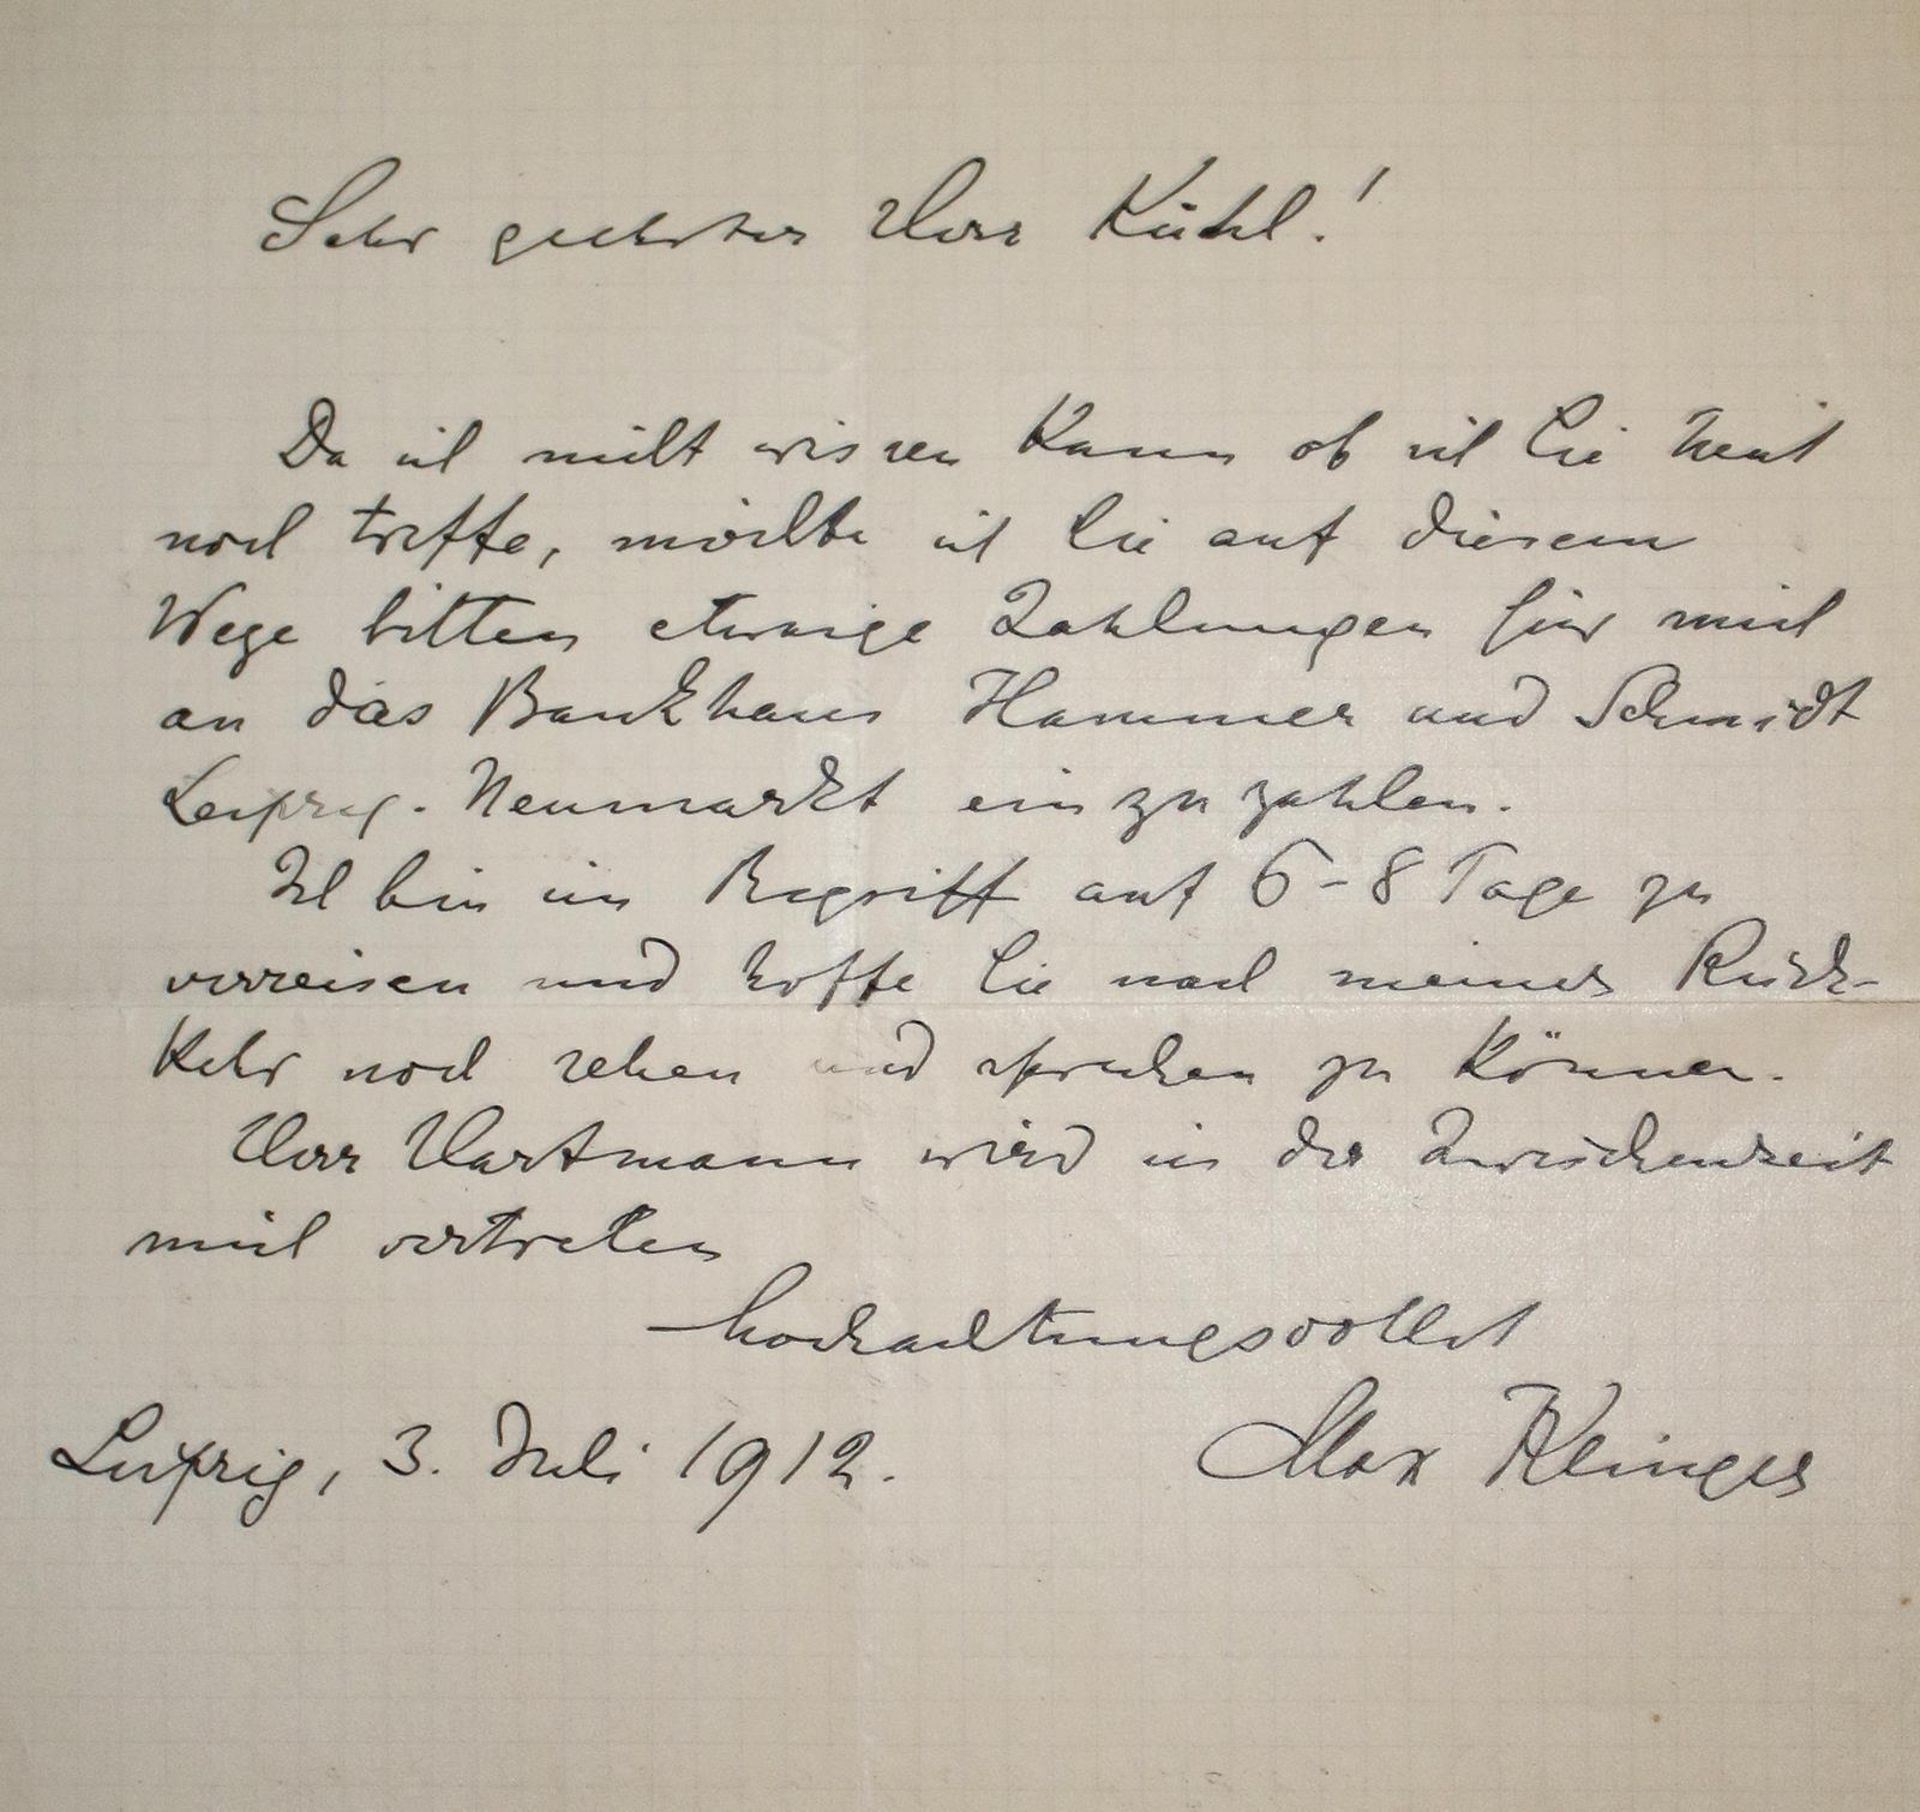 Sehr geehrter Herr Kühl!
Da ich nicht wissen kann ob ich Sie heut
noch treffe, möchte ich Sie auf diesem
Wege bitten etwaige Zahlungen für mich
an das Bankhaus Hammer und Schmidt
Leipzig. Neumarkt einzuzahlen.
Ich bin im Begriff auf 6-8 Tage zu
verreisen und hoffe Sie nach meiner Rück-
kehr noch sehen und sprechen zu können.
Herr Hartmann wird in der Zwischenzeit
mich vertreten
hochachtungsvollst
Leipzig, 3. Juli 1912. Max Klinger